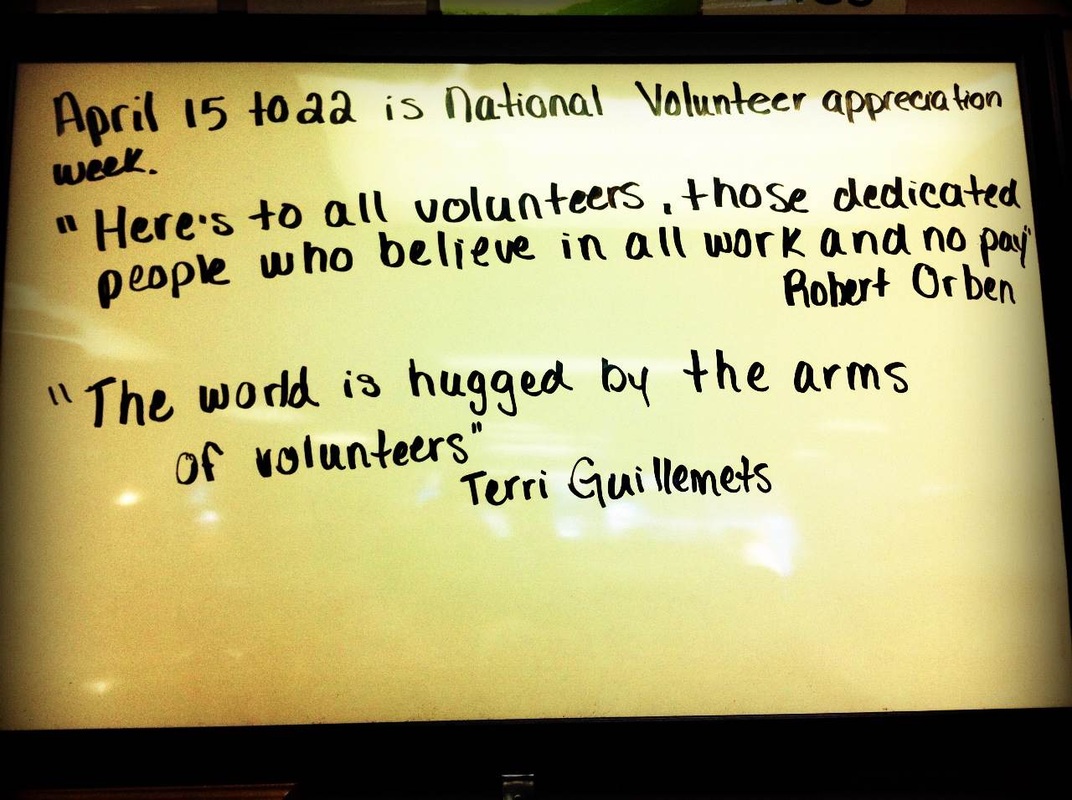 April 15 to 22 is National Volunteer appreciation
week.
"Here's to all volunteers, those dedicated
people who believe in all work and no pay"
Robert Orben
"The world is hugged by the arms
of volunteers"
Terri Guillemets